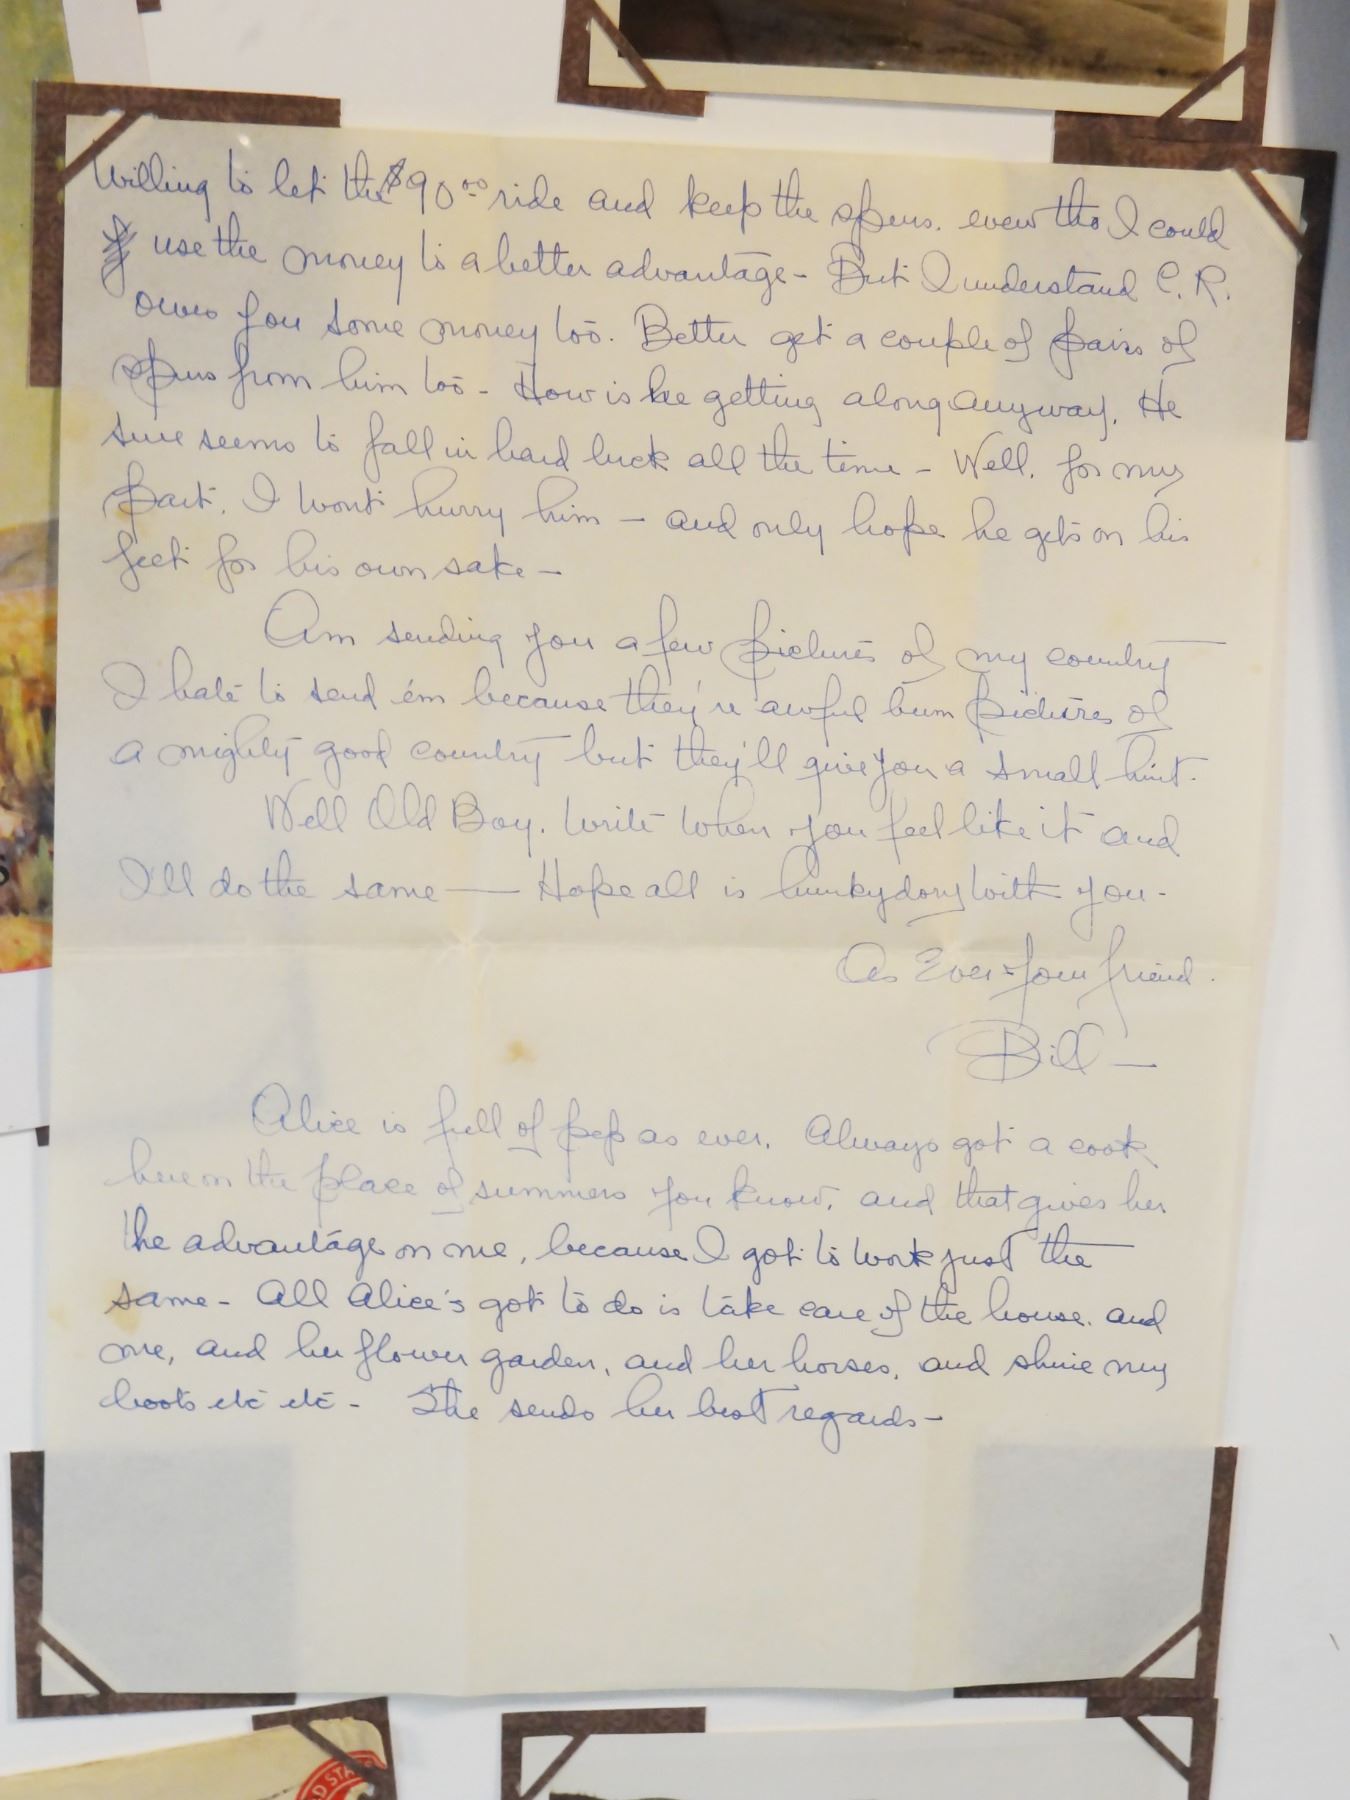 Willing to let the $90.00 ride and keep the spurs. even tho I could
use the money to a better advantage - But I understand C. R.
owes you some money too. Better get a couple of pairs of
spurs from him too - How is he getting along anyway. He
sure seems to fall in hard luck all the time - Well. for my
part. I wont hurry him - and only hope he gets on his
feet for his own sake -
Am sending you a few pictures of my country
I hate to send em because they're awful bum pictures of
a mighty good country but they'll give you a small hint.
Well Old Boy. Write when you feel like it and
I'll do the same — Hope all is hunkydory with you -
As Ever = Your friend.
Bill -
Alice is full of pep as ever. Always got a cook
here on the place of summers you know, and that gives her
the advantage on me, because I got to work just the
same - All Alice's got to do is take care of the house. and
me, and her flower garden, and her horses, and shine my
boots etc etc - She sends her best regards -